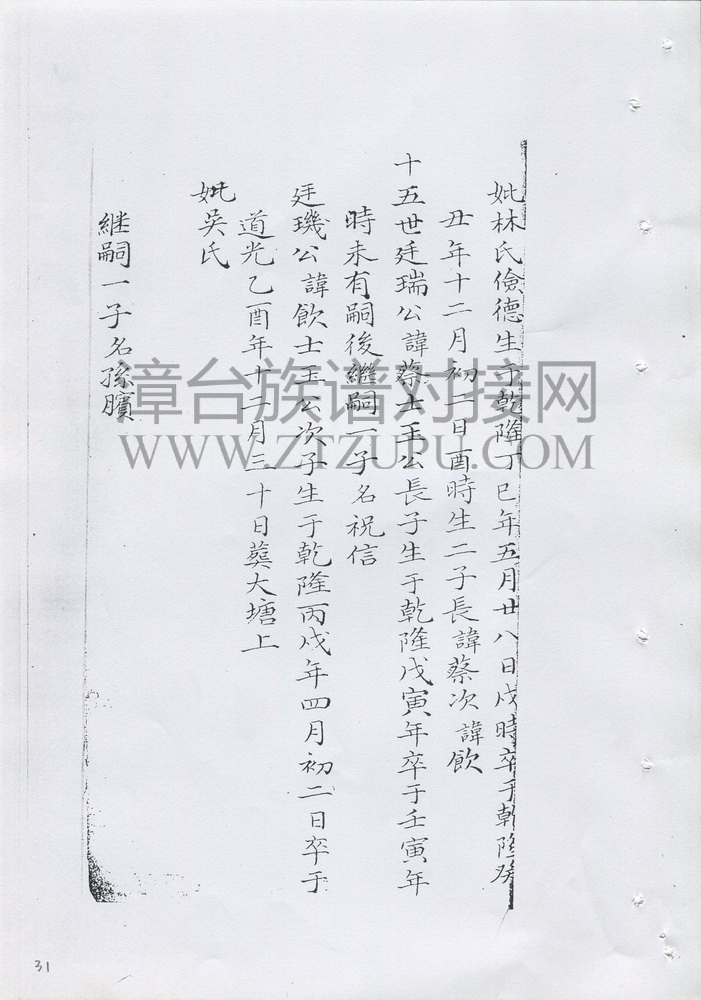 妣林氏儉德生于乾隆丁巳年五月廿八日戌時卒于乾隆癸
丑年十二月初二日酉時生二子長諱蔡次諱飲
十五世廷瑞公諱蔡士玉公長子生于乾隆戊寅年卒于壬寅年
時未有嗣後繼嗣一子名祝信
廷璣公諱飲士玉公次子生于乾隆丙戌年四月初二日卒于
道光乙酉年十二月三十日葬大塘上
妣吳氏
继嗣一子名孫
漳台族谱对接网
WWW.ZTZUPU.COM
31